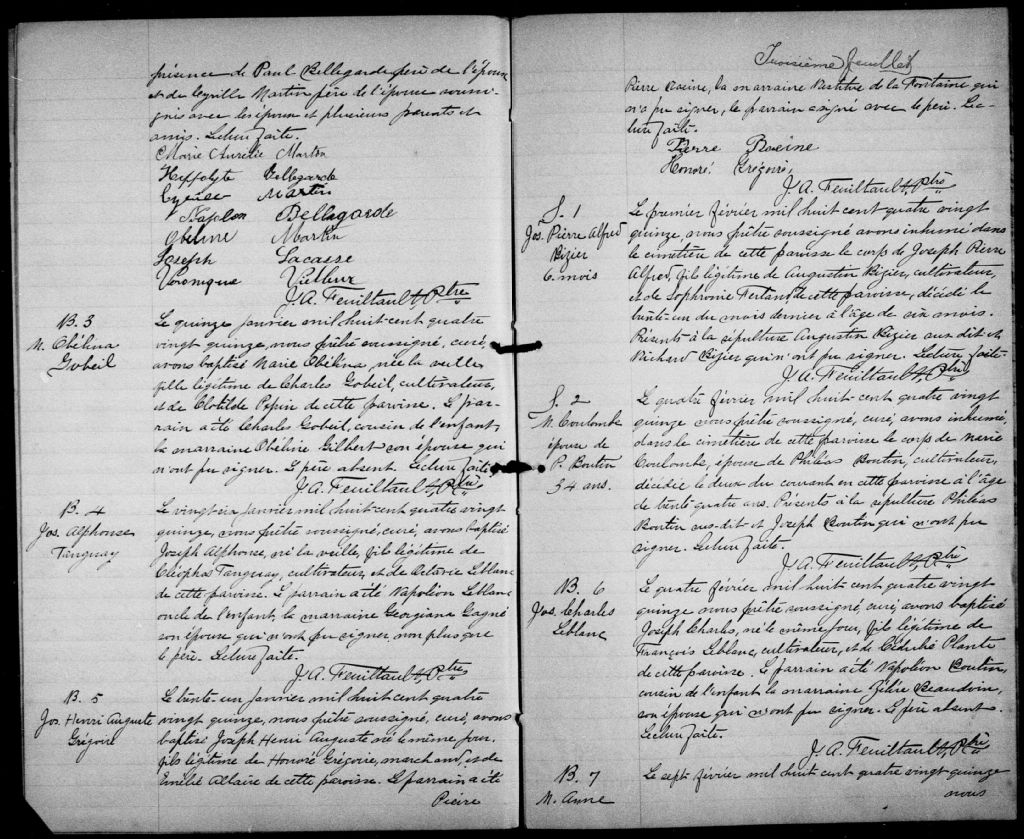 présence de Paul Bellegarde père de l'époux
et de Cyrille Martin père de l'épouse soussi-
gnés avec les époux et plusieurs parents et
amis. Lecture faite.
Marie Aurélie Martin
Hippolyte Bellegarde
Martin
Napoleon Bellegarde
Obeline Martin
Joseph Lacasse
Veronique Vilbur
J. A. Feuiltault, Ptre
B. 3
M. Obélina
Gobeil
Le quinze janvier mil huit-cent quatre
vingt quinze, nous prêtre soussigné, curé,
avons baptisé Marie Obélina née la veille
fille légitime de Charles Gobeil, cultivateur,
et de Clotilde Pepin de cette paroisse. Le par-
rain a été Charles Gobeil, cousin de l'enfant,
la marraine Obéline Gilbert son épouse qui
n'ont pu signer. Le père absent. Lecture faite.
J. A. Feuiltault, Ptre
B. 4
Jos. Alphonse
Tanguay
Le vingt-six janvier mil huit-cent quatre vingt
quinze, nous prêtre soussigné, curé, avons baptisé
Joseph Alphonse, né la veille, fils légitime de
Cléophas Tanguay, cultivateur, et de Octavie Leblanc
de cette paroisse. Le parrain a été Napoléon Leblanc
oncle de l'enfant, la marraine Georgiana Gagné
son épouse qui n'ont pu signer, non plus que
le père. Lecture faite.
J. A. Feuiltault, Ptre
B. 5
Jos. Henri Auguste
Grégoire
Le trente-un janvier mil huit cent quatre
vingt quinze, nous prêtre soussigné, curé, avons
baptisé Joseph Henri Auguste né le même jour
fils légitime de Honoré Grégoire, marchand, et de
Emélie Allaire de cette paroisse. Le parrain a été
Pierre
Troisième feuillet
Pierre Racine, la marraine de la Fontaine qui
n'a pu signer, le parrain a signé avec le père. Lec-
ture faite.
Pierre Racine
Honoré Grégoire,
J. A. Feuiltault, Ptre
S. 1
Jos. Pierre Alfred
Bizier
6 mois
Le premier février mil huit cent quatre vingt
quinze, nous prêtre soussigné avons inhumé dans
le cimetière de cette paroisse le corps de Joseph Pierre
Alfred, fils légitime de Augustin Bizier, cultivateur,
et de Sophronie Ferland, de cette paroisse, décédé le
trente-un du mois dernier à l'âge de six mois.
Présents à la sépulture Augustin Bizier sus dit et
Richard Bizier qui n'ont pu signer. Lecture faite.
J. A. Feuiltault, Ptre
S. 2
M. Coulombe
épouse de
P. Boutin
34 ans.
Le quatre février mil huit-cent quatre vingt
quinze nous prêtre soussigné, curé, avons inhumé,
dans le cimetière de cette paroisse le corps de Marie
Coulombe, épouse de Philéas Boutin, cultivateur,
décédée le deux du courant en cette paroisse à l'âge
de trente quatre ans. Présents à la sépulture Philéas
Boutin sus-dit et Joseph Boutin qui n'ont pu
signer. Lecture faite.
J. A. Feuiltault, Ptre
B. 6
Jos. Charles
Leblanc
Le quatre février mil huit cent quatre vingt
quinze nous prêtre soussigné, curé, avons baptisé
Joseph Charles, né le même jour, fils légitime de
François Leblanc, cultivateur, et de Plante
de cette paroisse. Le parrain a été Napoléon Boutin,
cousin de l'enfant la marraine Zélire Beaudoin,
son épouse qui n'ont pu signer. Le père absent.
Lecture faite.
J. A. Feuiltault, Ptre
B. 7
M. Anne
Le sept février mil huit cent quatre vingt quinze
nous